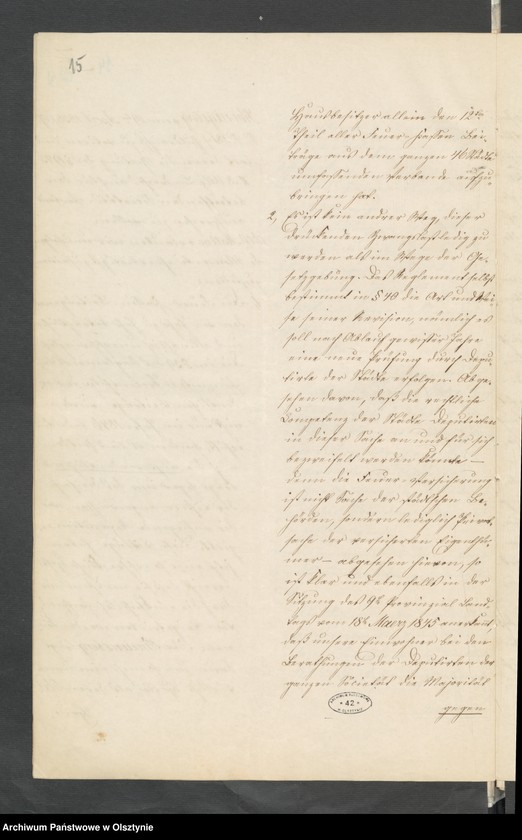 15
Hausbesitzer allein den 12ten
Theil aller Feuer-Kassen Bei-
träge aus dem ganzen 40 Städte
umfassenden Verbande aufzu-
bringen hat.
2, Es ist kein andrer Weg, dieser
drückenden Zwangslast ledig zu
werden als im Wege der Ge-
setzgebung. Das Reglement selbst
bestimmt in § 40 die Art und Wei-
se seiner Revision, nämlich es
soll nach Ablauf gewisser Jahre
eine neue Prüfung durch Depu-
tirte der Städte erfolgen. Abge-
sehen davon, daß die rechtliche
Competenz der Städte Deputirten
in dieser Sache an und für sich
bezweifelt werden könnte —
denn die Feuer-Versicherung
ist nicht Sache der städtschen Be-
hörden, sondern lediglich Privat-
sache der versicherten Eigenthü-
mer — abgesehen hievon, so
ist klar und ebenfalls in der
Sitzung des 9t Provinzial Land-
tags vom 18t Maerz 1845 anerkannt
daß unsere Einwohner bei den
Berathungen der Deputirten der
ganzen Societät die Majorität
gegen
42
Archiwum Państwowe w Olsztynie